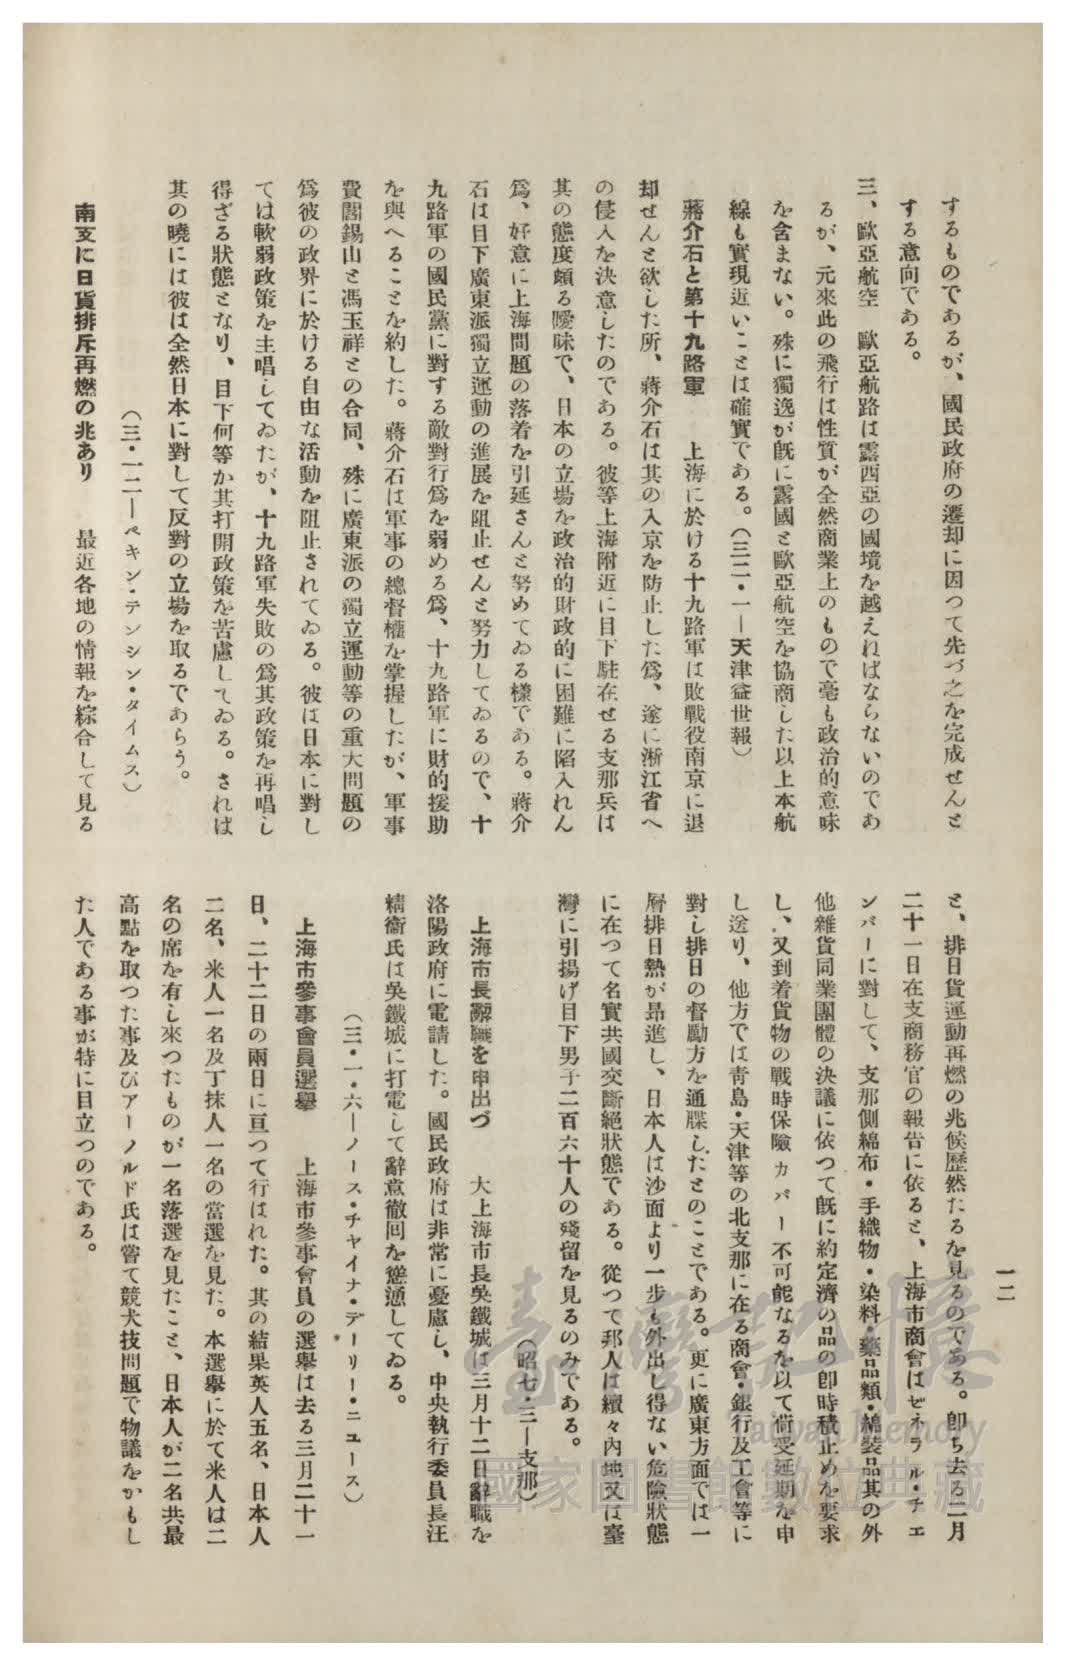 一二
するものであるが、國民政府の遷却に因つて先づ之を完成せんと
する意向である。
三、歐亞航空　歐亞航路は露西亞の國境を越えればならないのであ
るが、元來此の飛行は性質が全然商業上のもので毫も政治的意味
を含まない。殊に獨逸が旣に露國と歐亞航空を協商した以上本航
線も實現近いことは確實である。（三二・一—天津益世報）
蔣介石と第十九路軍　上海に於ける十九路軍は敗戰役南京に退
却せんと欲した所、蔣介石は其の入京を防止した爲、遂に淅江省へ
の侵入を決意したのである。彼等上海附近に目下駐在せる支那兵は
其の態度頗る曖昧で、日本の立場を政治的財政的に困難に陷入れん
爲、好意に上海問題の落着を引延さんと努めてゐる樣である。蔣介
石は目下廣東派獨立運動の進展を阻止せんと努力してゐるので、十
九路軍の國民黨に對する敵對行爲を弱める爲、十九路軍に財的援助
を與へることを約した。蔣介石は軍事の總督權を掌握したが、軍事
費閻錫山と馮玉祥との合同、殊に廣東派の獨立運動等の重大問題の
爲彼の政界に於ける自由な活動を阻止されてゐる。彼は日本に對し
ては軟弱政策を主唱してゐたが、十九路軍失敗の爲其政策を再唱し
得ざる狀態となり、目下何等か其打開政策を苦慮してゐる。されば
其の曉には彼は全然日本に對して反對の立場を取るであらう。
（三・一二—ペキン・テンシン・タイムス）
南支に日貨排斥再燃の兆あり　最近各地の情報を綜合して見る
と、排日貨運動再燃の兆候歷然たるを見るのである。卽ち去る二月
二十一日在支商務官の報告に依ると、上海市商會はゼネラル・チエ
ンバーに對して、支那側綿布・手織物・染料・藥品類・綿裝品其の外
他雜貨同業團體の決議に依つて旣に約定濟の品の卽時積止めを要求
し、又到着貨物の戰時保險カバー不可能なるを以て荷受延期を申
し送り、他方では靑島・天津等の北支那に在る商會・銀行及工會等に
對し排日の督勵方を通牒したとのことである。更に廣東方面では一
層排日熱が昂進し、日本人は沙面より一步も外出し得ない危險狀態
に在つて名實共國交斷絕狀態である。從つて邦人は續々內地又は臺
灣に引揚げ目下男子二百六十人の殘留を見るのみである。
（昭七・三—支那）
上海市長辭職を申出づ　大上海市長吳鐵城は三月十二日辭職を
洛陽政府に電請した。國民政府は非常に憂慮し、中央執行委員長汪
精衞氏は吳鐵城に打電して辭意徹囘を慫慂してゐる。
（三・一・六—ノース・チャイナ・デーリー・ニュース）
上海市參事會員選擧　上海市參事會員の選擧は去る三月二十一
日、二十二日の兩日に亘つて行はれた。其の結果英人五名、日本人
二名、米人一名及丁抹人一名の當選を見た。本選擧に於て米人は二
名の席を有し來つたものが一名落選を見たこと、日本人が二名共最
高點を取つた事及びアーノルド氏は嘗て競犬技問題で物議をかもし
た人である事が特に目立つのである。
臺灣記憶
Taiwan Memory
國家圖書館數位典藏